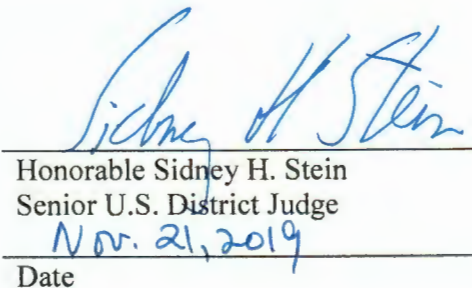 Sidney H Stein
Honorable Sidney H. Stein
Senior U.S. District Judge
Nov. 21, 2019
Date